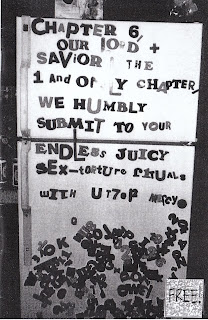 CHAPTER 6,
OUR LORD +
SAVIOR! THE
1 And ONLY CHAPTER,
WE HUMBLY
SUBMIT TO YOUR
ENDLESS JUICY
SEX-torture rituals
with
mercy
FREE!